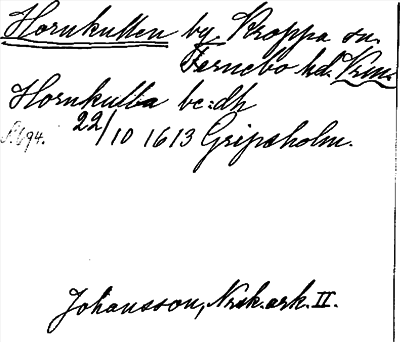 Hornkullen by, Kroppa sn.
Fernebo hd. Vrml.
Hornkulba be:dh
S. 694. 22/10 1613 Gripsholm.
Johansson, Nrsk. ark. II.